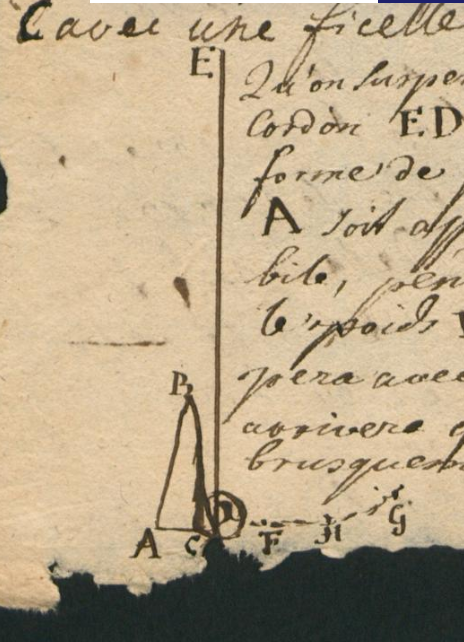 C avec une ficelle
E
Qu'on suspen
Cordon ED
forme de p
A soit app
bile, pen
le poids
pera avec
B
arrivera q
brusquem
A C D F H G